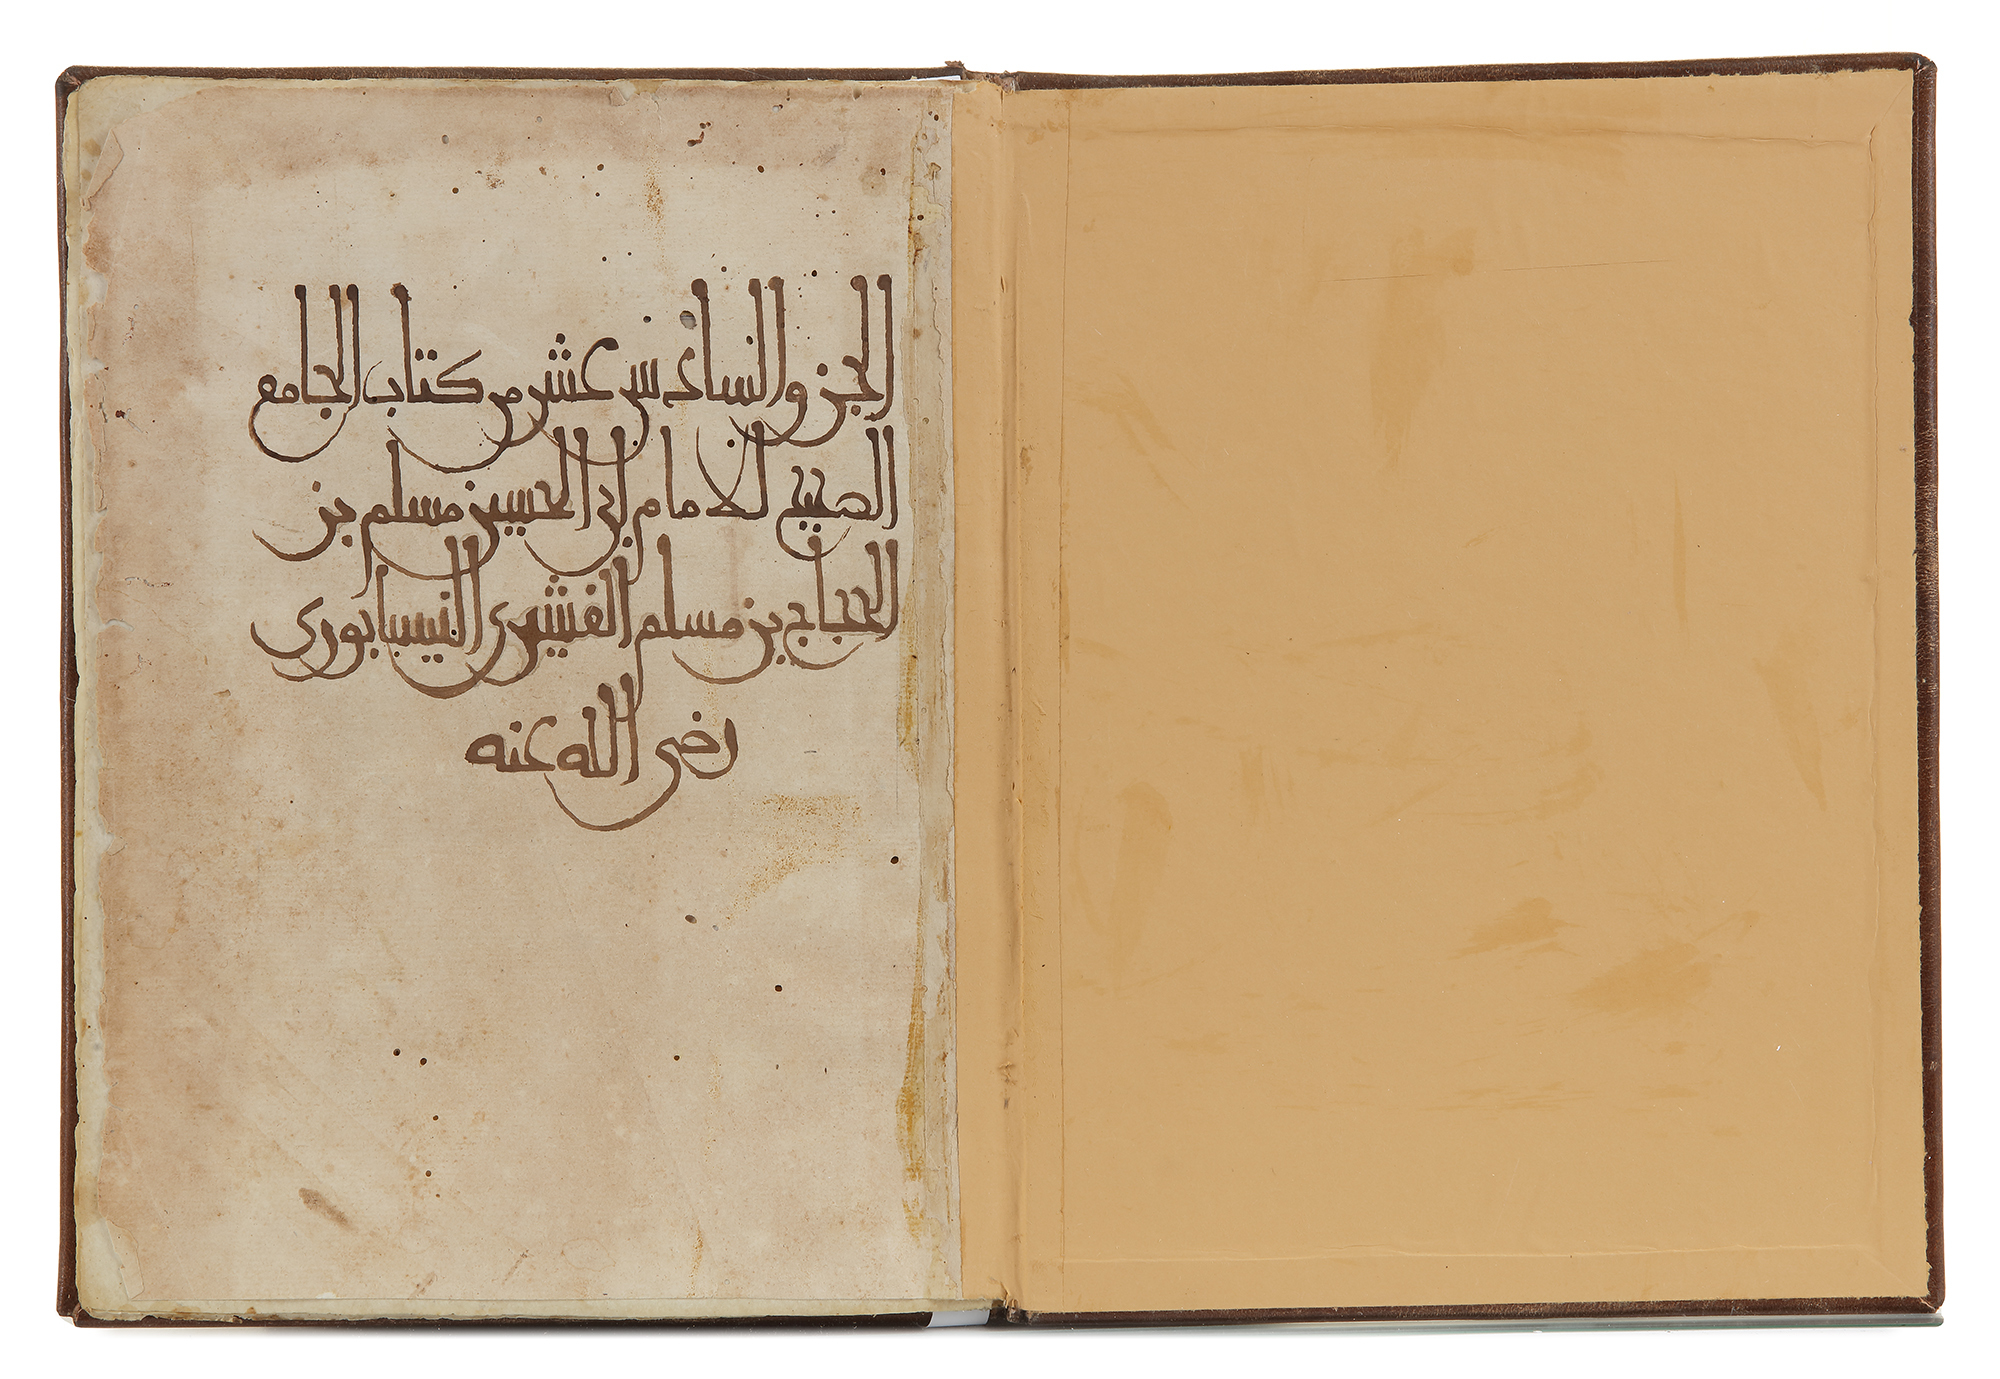 الجزو السادس عشر من كتاب الجامع
الصحيح للامام ابى الحسين مسلم بن
الحجاج بن مسلم القشيرى النيسابورى
رضى الله عنه